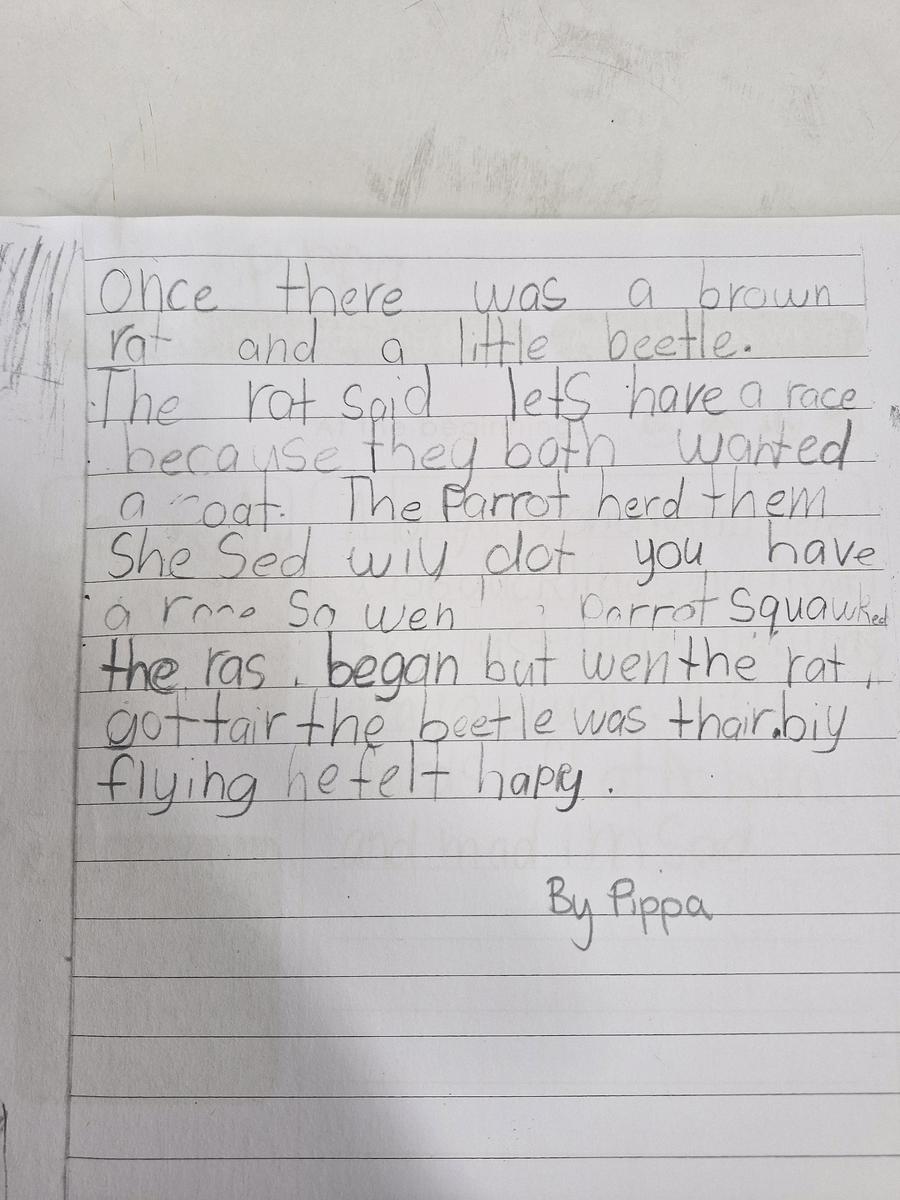 Once there was a brown
rat and a little beetle.
The rat said lets have a race
because they both wanted
a oat. The Parrot herd them
She Sed wiy dot you have
a So wen Parrot Squawked
the ras. began but wen the rat
got tair the beetle was thair.biy
flying he felt hapy.
By Pippa